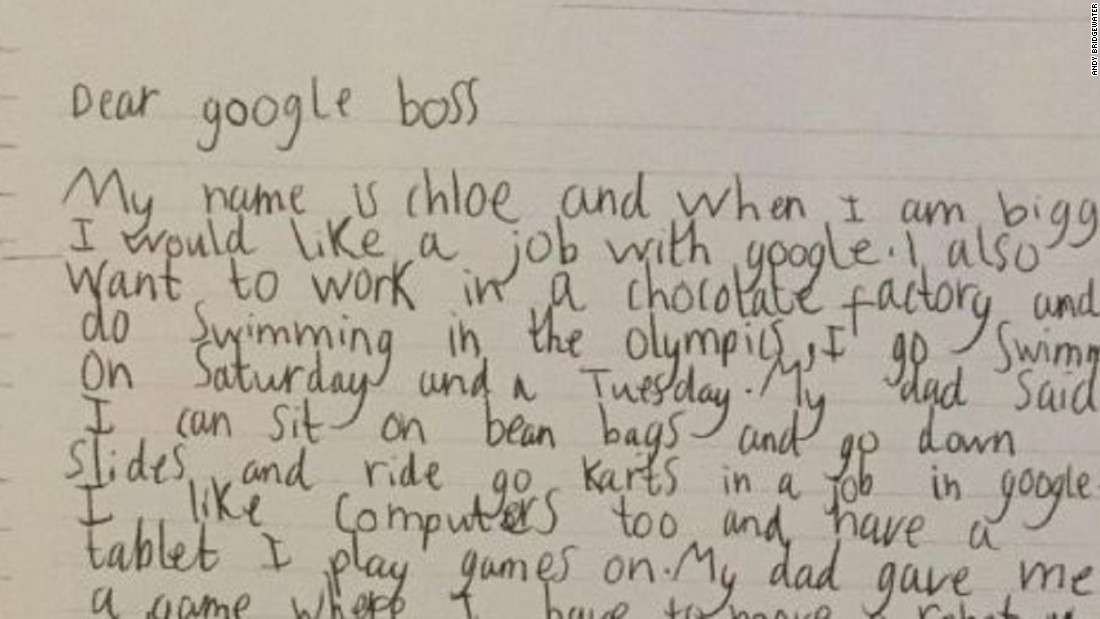 Dear google boss
My name is chloe and when I am bigg
I would like a job with google. I also
want to work in a chocolate factory and
do swimming in the olympics, I go Swimm
on Saturday and a Tuesday. My dad said
I can sit on bean bags and go down
slides and ride go karts in a job in google.
I like computers too and have a
tablet I play games on. My dad gave me
a game where I have to move a robot
ANDY BRIDGEWATER